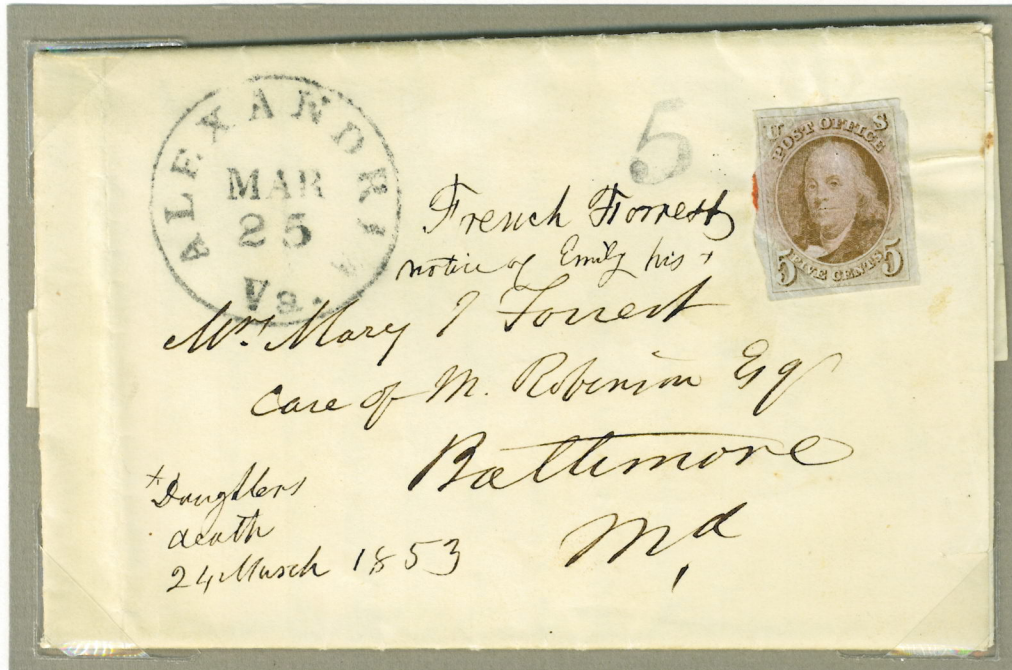 ALEXANDRIA
MAR
25
Va.
5
U S
POST OFFICE
5 FIVE CENTS 5
French Forrest
notice of Emily his +
Mrs Mary T Forrest
Care of M. Robinson Esq
Baltimore
Md
+ Daughters
death
24 March 1853